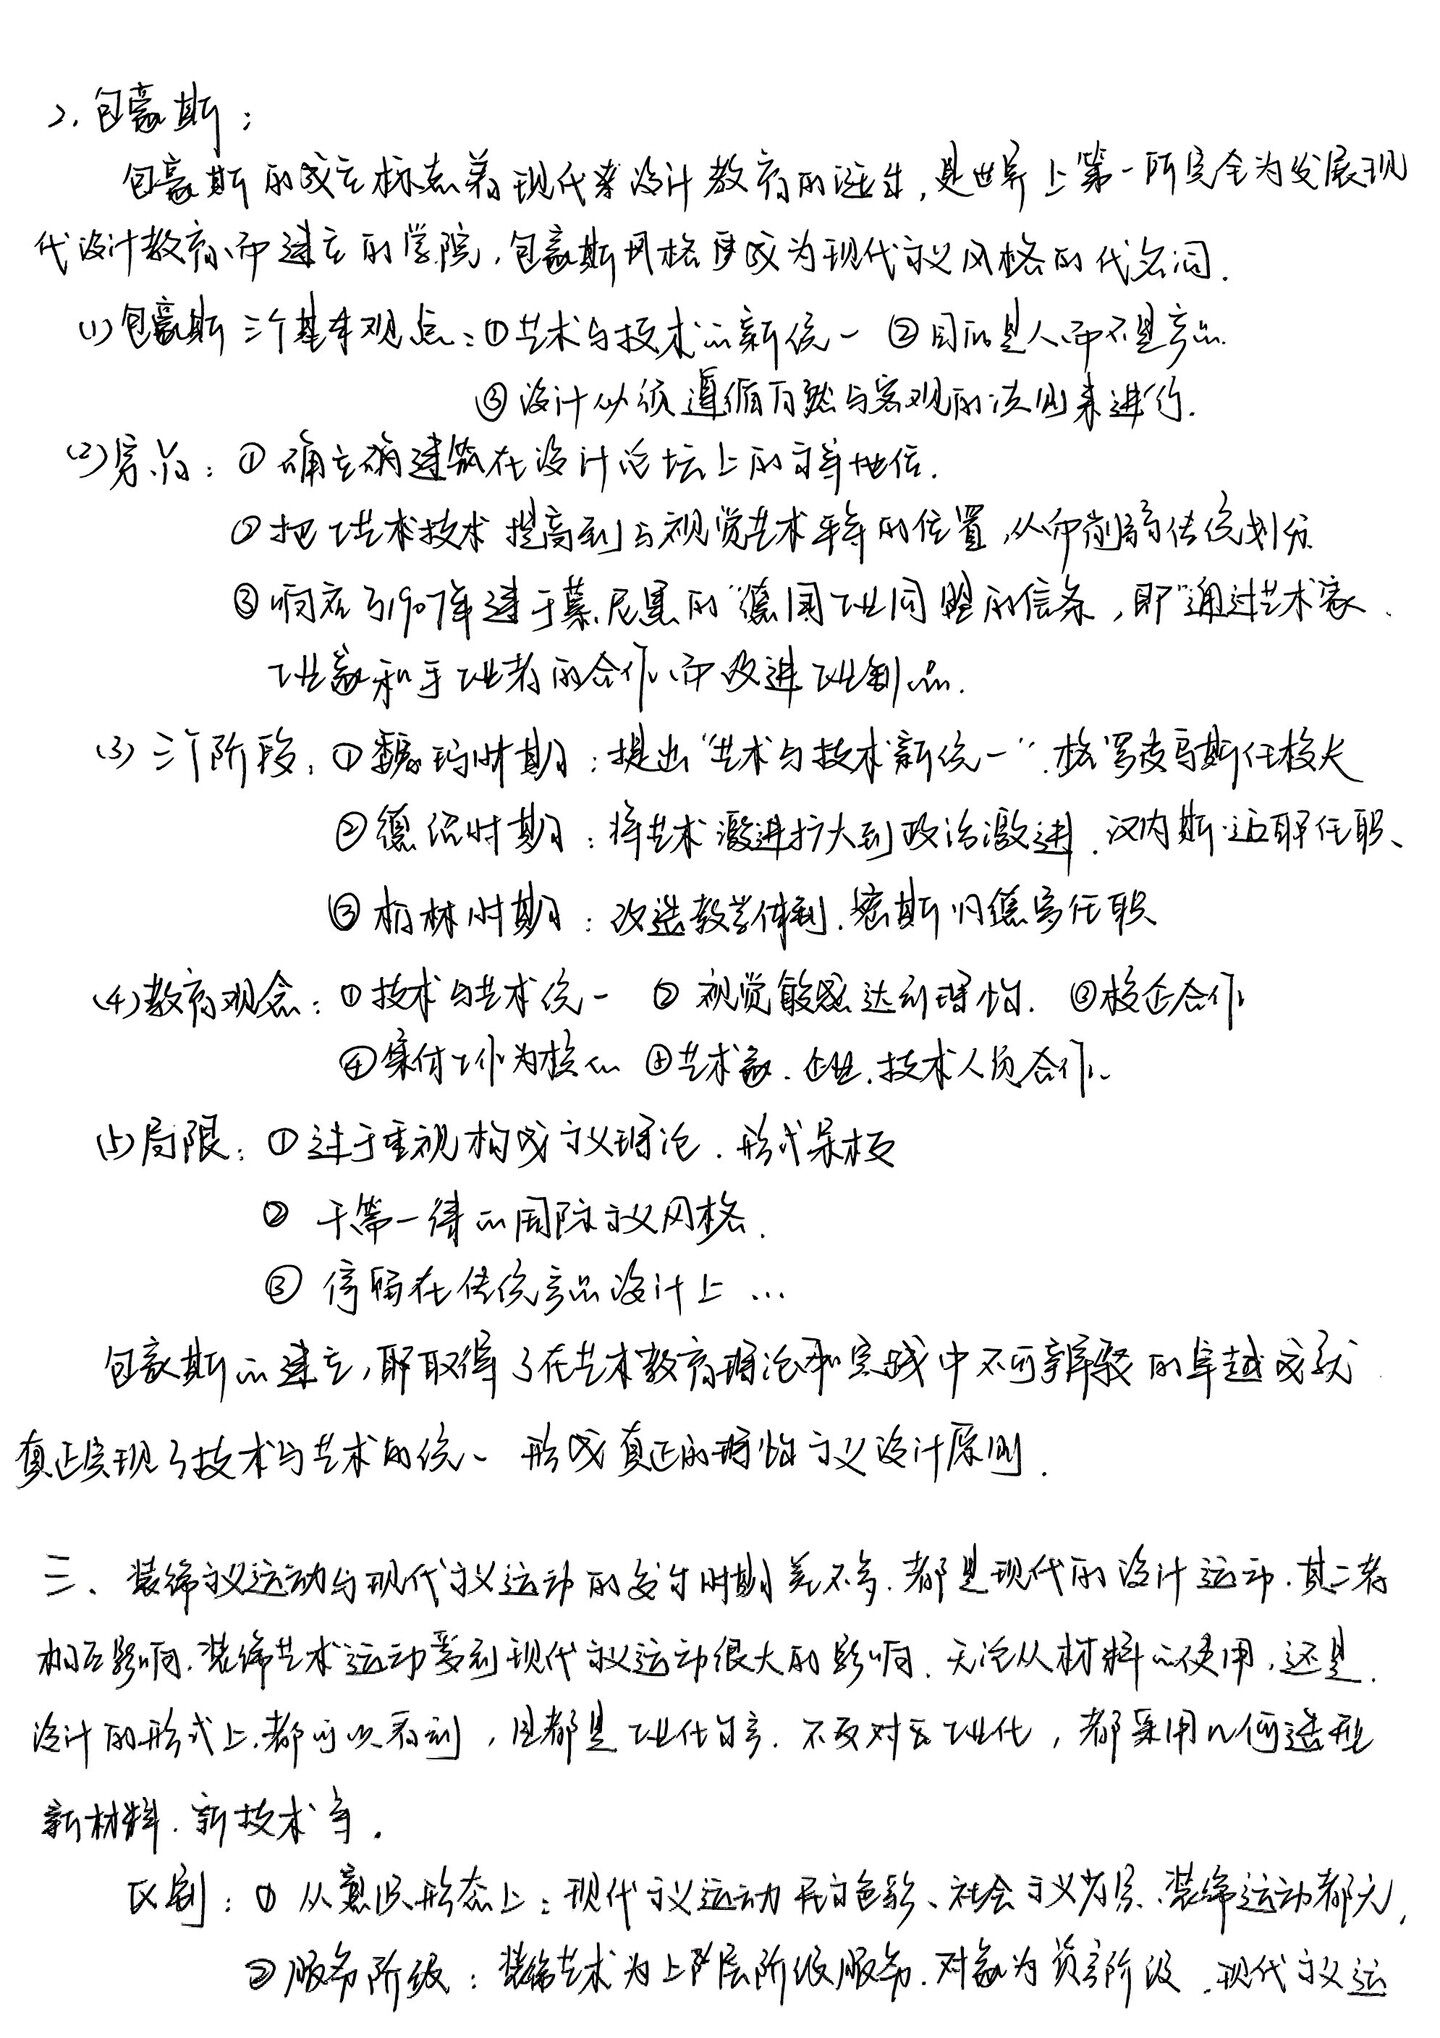 2. 包豪斯：
包豪斯的成立标志着现代设计教育的诞生，是世界上第一所完全为发展现
代设计教育而建立的学院，包豪斯风格更成为现代主义风格的代名词.
(1)包豪斯三个基本观点：①艺术与技术的新统一 ②目的是人而不是产品.
③设计必须遵循自然与客观的法则来进行.
(2)宗旨：①确立确建筑在设计论坛上的主导地位.
②把工艺术技术提高到与视觉艺术平等的位置，从而削弱传统划分.
③响应了1907年建于慕尼黑的“德国工业同盟的信条，即“通过艺术家、
工业家和手工业者的合作而改进工业制品.
(3)三个阶段：①魏玛时期：提出“艺术与技术新统一”.格罗皮乌斯任校长
②德绍时期：将艺术激进扩大到政治激进.汉内斯·迈耶任职、
③柏林时期：改造教学体制.密斯凡德罗任职
(4)教育观念：①技术与艺术统一 ②视觉敏感达到理性. ③校企合作
④集体工作为核心 ⑤艺术家.企业.技术人员合作、
(5)局限：①过于重视构成主义理论.形式呆板
② 千篇一律的国际主义风格.
③ 停留在传统产品设计上…
包豪斯的建立，即取得了在艺术教育理论和实践中不可辩驳的卓越成就
真正实现了技术与艺术的统一 形成真正的理性主义设计原则.
三、装饰主义运动与现代主义运动的发生时期差不多.都是现代的设计运动.其二者
相互影响.装饰艺术运动受到现代主义运动很大的影响.无论从材料的使用，还是
设计的形式上.都可以看到，且都是工业化的产.不反对工业化，都采用几何造型
新材料.新技术等.
区别：①从意识形态上：现代主义运动民主色彩、社会主义背景、装饰运动都无，
②服务阶级：装饰艺术为上层阶级服务.对象为资产阶级.现代主义运